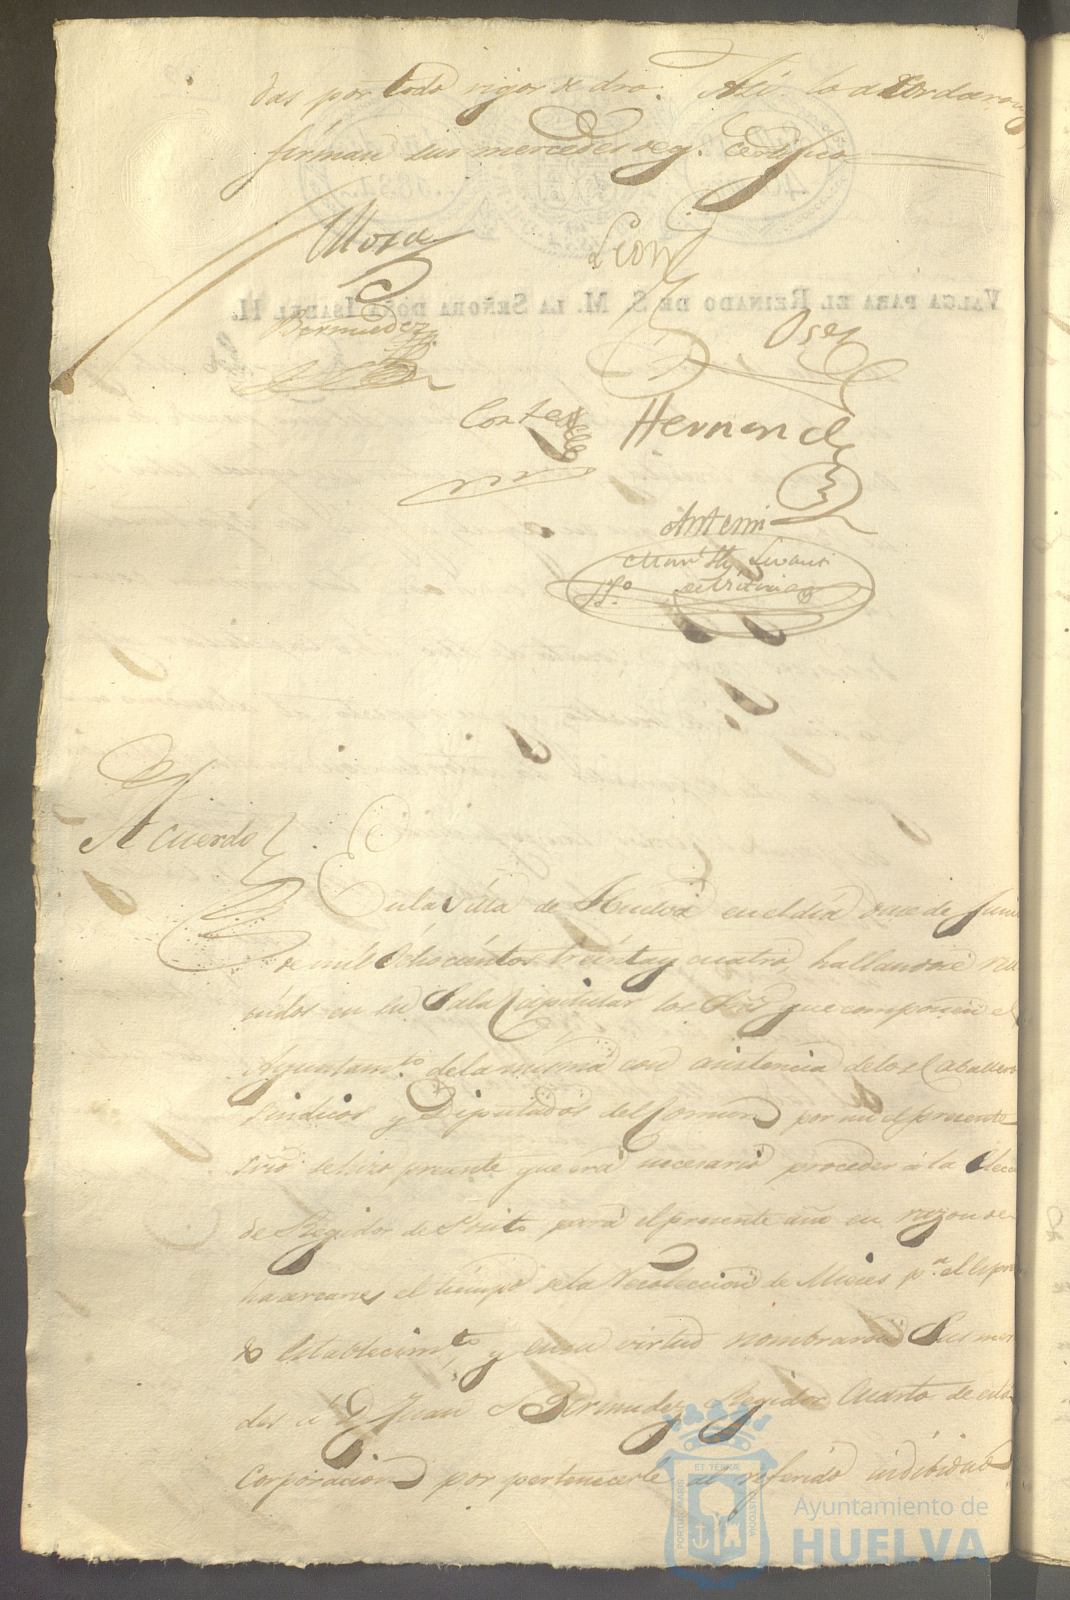 das por todo rigor de dro. Asi lo acordaron y
firman sus mercedes de q. Certifico
Mora
Leon
Bermudez
Osez
Cortes
Hernandz
Antemi
Acuerdo
En la Villa de Huelva en el dia once de Junio
de mil Ochocientos treinta y cuatro, hallandose reu
nidos en su Sala Capitular los Sres que componen el
Ayuntamto. de la misma con asistencia de los Caballeros
Sindicos y Diputados del Comun por mi el presente
Srio se hizo presente que era necesario proceder á la elecc
de Regidor de Posito para el presente año en razon de
hacercarse el tiempo de la Recoleccion de Mieses pa. el
establecimto y en su virtud nombraron Sus mer
des á D Juan Bermudez Regidor Cuarto de esta
Corporacion por pertenecerle al referido individuo
VALGA PARA EL REINADO DE S. M. LA SEÑORA DOÑA ISABEL II.
PORTUS MARIS
ET TERRÆ
CUSTODIA
Ayuntamiento de
HUELVA